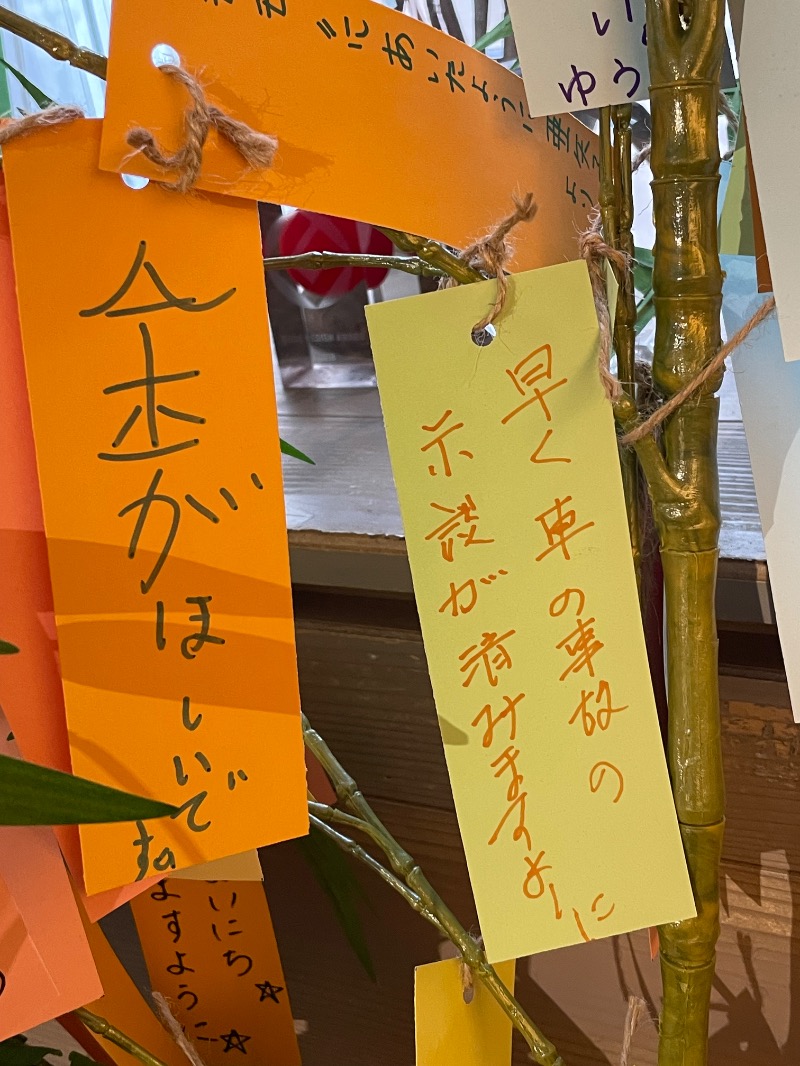 金がほしいです
早く車の事故の
示談が済みますように
にあいたように
いにち☆
ますように…☆
ゆう